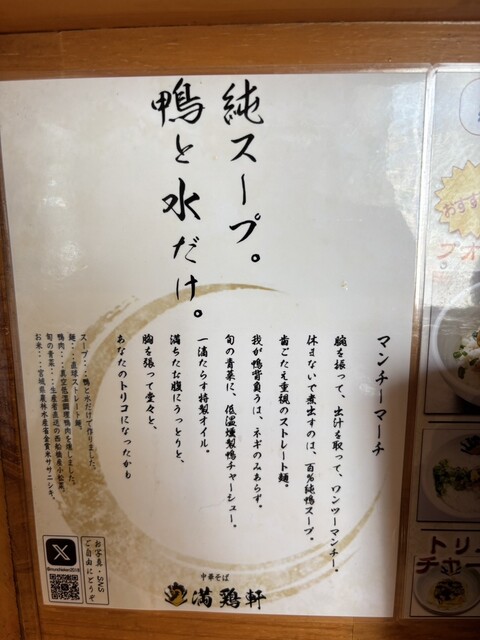 純スープ。
鴨と水だけ。
マンチーマーチ
腕を振って、出汁を取って、ワンツーマンチー。
休まないで煮出すのは、百%純鴨スープ。
歯ごたえ重視のストレート麺。
我が鴨背負うは、ネギのみあらず。
旬の青菜に、低温燻製鴨チャーシュー。
一滴たらす特製オイル。
満ちたお腹にうっとりと、
胸を張って堂々と、
あなたのトリコになったかも
スープ・・・鴨と水だけで作りました。
麺・・・直球ストレート麺。
鴨肉・・・真空低温調理鴨肉を燻しました。
旬の青菜・・・生産者直送の西船橋産小松菜。
お米・・・宮城県農林水産省金賞米ササニシキ。
X
お写真・SNS
ご自由にどうぞ
中華そば
満鶏軒
おすす
フォ
トリ
チャー